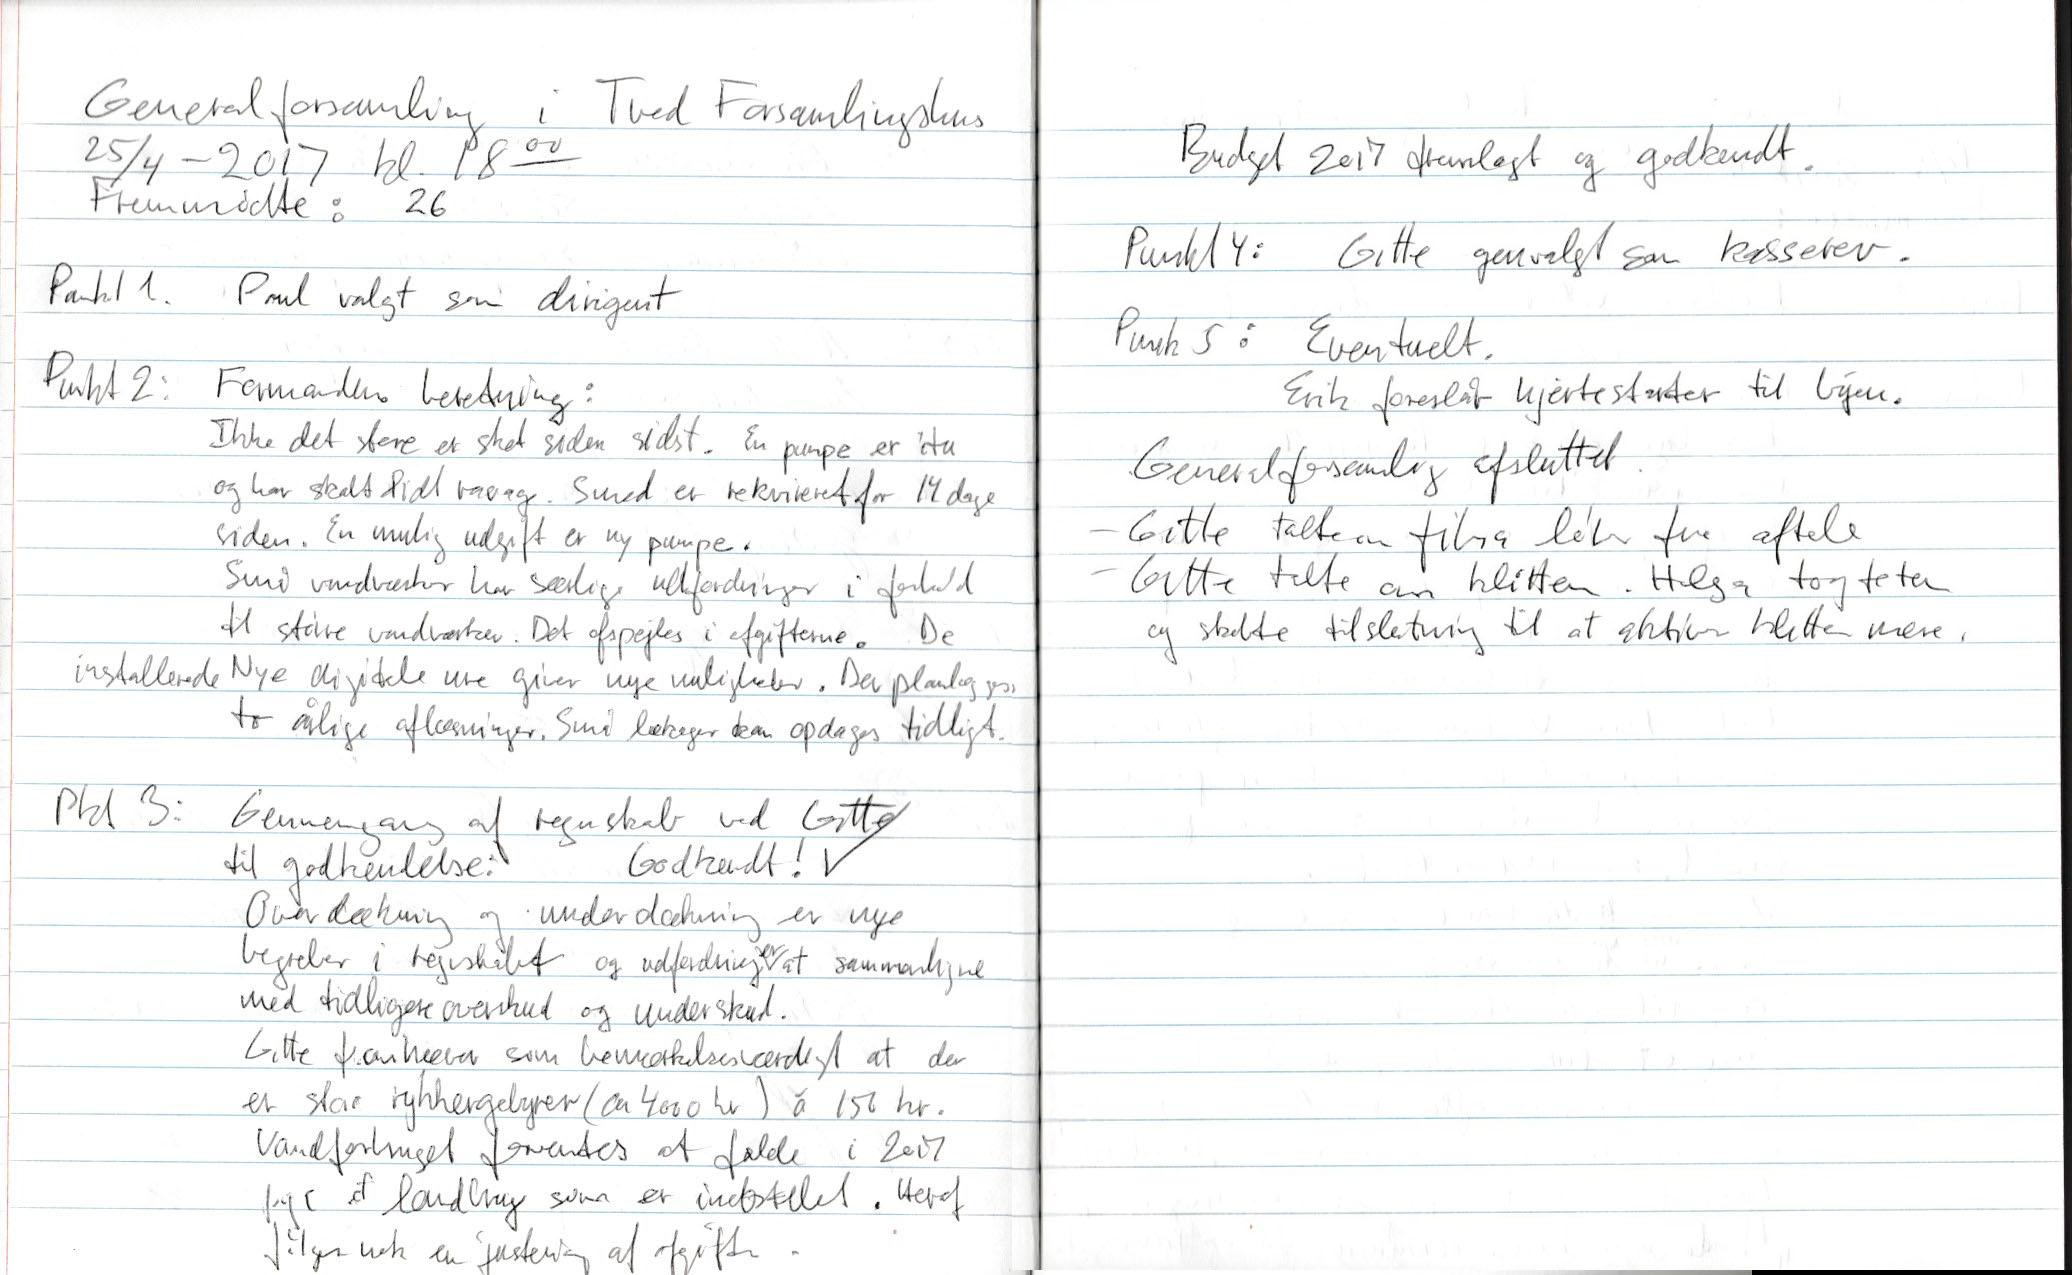 Generalforsamling i Tved Forsamlingshus
25/4 - 2017 kl. 18 00
Fremmødte: 26
Punkt 1. Poul valgt som dirigent
Punkt 2: Formandens beretning:
Ikke det store er sket siden sidst. En pumpe er itu
og har skabt lidt ravage. Smed er rekvireret for 14 dage
siden. En mulig udgift er ny pumpe.
Små vandværker har særlige udfordringer i forhold
til større vandværker. Det afspejles i afgifterne. De
installerede Nye digitale ure giver nye muligheder. Der planlægges
to årlige aflæsninger. Små lækager kan opdages tidligt.
Pkt 3: Gennemgang af regnskab ved Gitte
til godkendelse: Godkendt! ✓
Overdækning og underdækning er nye
begreber i regnskabet og udfordringer at sammenligne
med tidligere overskud og underskud.
Gitte fremhæver som bemærkelsesværdigt at der
er store rykkergebyrer (ca 4000 kr) á 150 kr.
Vandforbruget forventes at falde i 2017
pgr af landbrug som er indstillet. Heraf
følger nok en justering af afgifter.
Budget 2017 fremlagt og godkendt.
Punkt 4: Gitte genvalgt som kasserer.
Punk 5: Eventuelt.
Erik foreslår hjertestarter til byen.
Generalforsamling afsluttet.
- Gitte talte om fibia
- Gitte talte om klitten. Helga tog teten
og skabte tilslutning til at klitten mere.